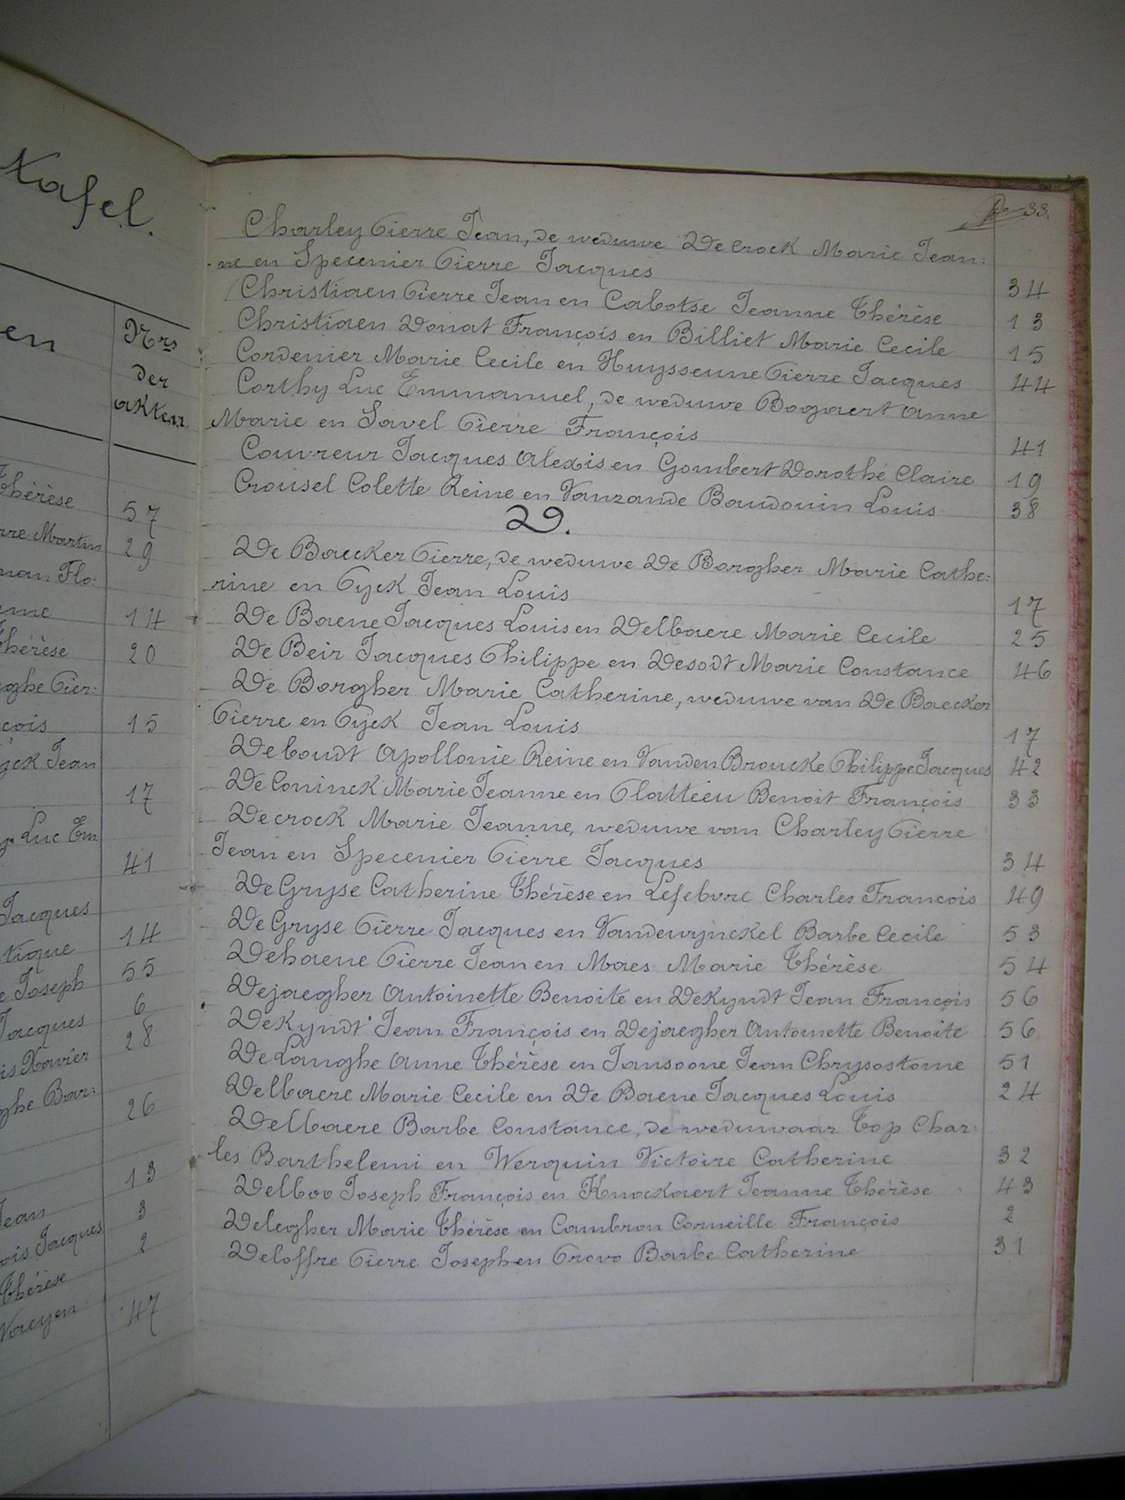 Tafel.
en
Nrs
der
akten
Thérèse 57
rre Martin 29
nan Flo:
enne 14
Thérèse 20
ghe Pier:
çois 15
yck Jean
17
Luc Em
41
Jacques
tique 14
e Joseph 55
Jacques 6
is Xavier 28
ghe Bar:
26
13
Jean 3
ois Jacques 2
Thérèse
Vaeyen 47
33.
Charley Pierre Jean, de weduwe Decrock Marie Jean:
ne en Specenier Pierre Jacques 34
Christiaen Pierre Jean en Cabotse Jeanne Thérèse 13
Christiaen Donat François en Billiet Marie Cecile 15
Cordenier Marie Cecile en Huysseune Pierre Jacques 44
Corthy Luc Emmanuel, de weduwe Bogaert Anne
Marie en Savel Pierre François 41
Couvreur Jacques Alexis en Gombert Dorothé Claire 19
Crousel Colette Reine en Vanzande Baudouin Louis 38
D.
De Baecker Pierre, de weduwe De Borgher Marie Cathe:
rine en Pyck Jean Louis 17
De Baene Jacques Louis en Delbaere Marie Cecile 25
De Beir Jacques Philippe en Desodt Marie Constance 46
De Borgher Marie Catherine, weduwe van De Baecker
Pierre en Pyck Jean Louis 17
Deboudt Apollonie Reine en Vanden Broucke Philippe Jacques 42
De Coninck Marie Jeanne en Platteeu Benoit François 33
Decrock Marie Jeanne, weduwe van Charley Pierre
Jean en Specenier Pierre Jacques 34
De Gryse Catherine Thérèse en Lefebvre Charles François 49
De Gryse Pierre Jacques en Vandewynckel Barbe Cecile 53
Dehaene Pierre Jean en Maes Marie Thérèse 54
Dejaegher Antoinette Benoite en DeKyndt Jean François 56
DeKyndt Jean François en Dejaegher Antoinette Benoite 56
De Langhe Anne Thérèse en Jansoone Jean Chrysostome 51
Delbaere Marie Cecile en De Baene Jacques Louis 24
Delbaere Barbe Constance, de weduwaar Top Char:
les Barthelemi en Werquin Victoire Catherine 32
Delboo Joseph François en Knockaert Jeanne Thérèse 43
Delegher Marie Thérèse en Cambron Corneille François 2
Deloffre Pierre Joseph en Provo Barbe Catherine 31